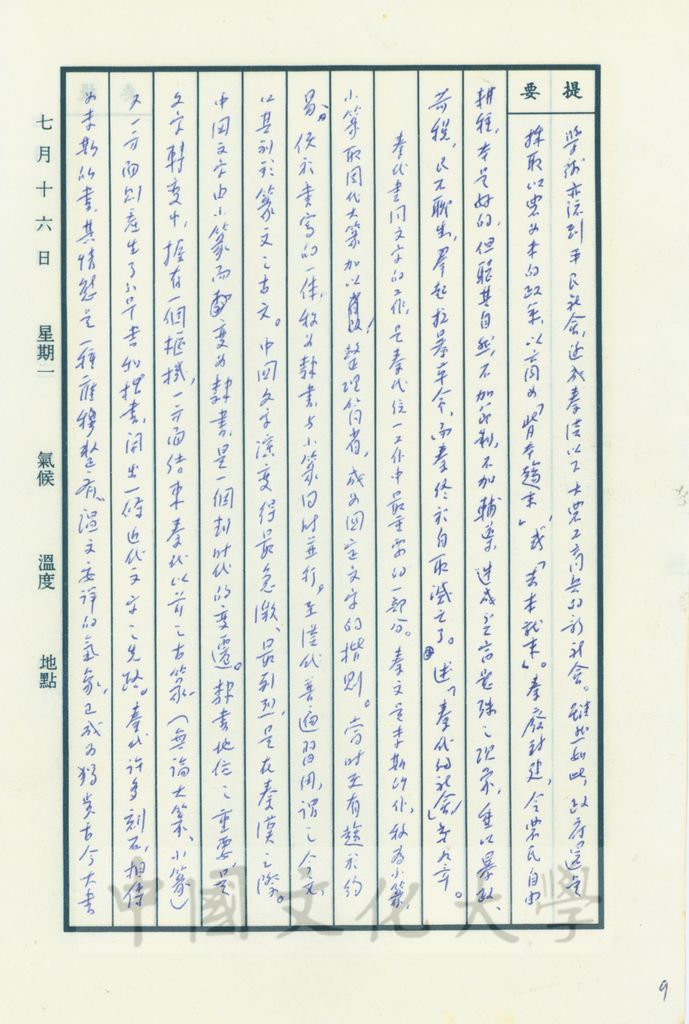 提要
學術亦流到平民社會,造成秦漢以下士農工商兵的新社會。雖然如此,政府還是
採取以農為本的政策,以商為「背本趨末」,或「去本就末」。秦廢封建,令農民自由
耕種,本是好的,但聽其自然,不加節制,不加輔導,造成貧富懸殊之現象,重以暴政、
苛稅,民不聊生,羣起抗暴革命,而秦終於自取滅亡了。述「秦代的社會」第九章。
秦代書同文字的工作,是秦代統一工作中最重要的一部分。秦文是李斯所作,稱為小篆,
小篆取周代大篆加以整理簡省,成為固定文字的楷則。當時亦有趨於約
易,便於書寫的一体,稱為隸書,与小篆同时並行。至漢代普遍習用,謂之今文,
以其別於篆文之古文。中国文字演變得最急激、最剧烈,是在秦漢之際。
中国文字由小篆而變为隸書,是一個划时代的變遷。隸書地位之重要,是
文字轉變中,握有一個樞機,一方面结束秦代以前之古篆(無論大篆、小篆)
又一方面則產生了草書和楷書,開出一條近代文字之先路。秦代許多刻石,相傳
为李斯的書,其情態是一種雍穆整肅,溫文安詳的氣象,已成为獨步古今大書
七月十六日 星期一 氣候 溫度 地點
中國文化大學
9